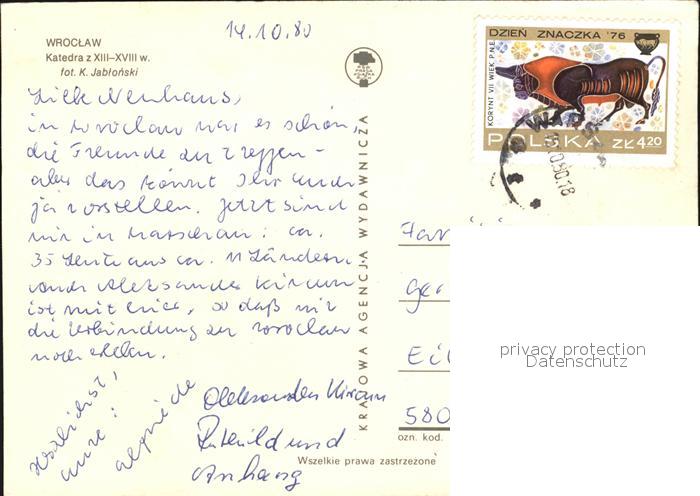 14.10.80
WROCŁAW
Katedra z XIII–XVIII w.
fot. K. Jabłoński
KRAJOWA AGENCJA WYDAWNICZA
Wszelkie prawa zastrzeżone
DZIEŃ ZNACZKA '76
KORYNT VII WIEK P.N.E.
POLSKA ZŁ 4.20
Neuhaus,
in Wroclaw war es schön
die Freunde zu treffen –
aber das könnt Ihr euch
ja vorstellen. Jetzt sind
wir in Warschau: ca.
35 Leute aus ca. 11 Ländern
Aleksander
ist mit so daß wir
die Verbindung zu Wroclaw
noch
Herzlichst,
eure:
Aleksander
und
Anhang
580
ozn. kod.
privacy protection
Datenschutz